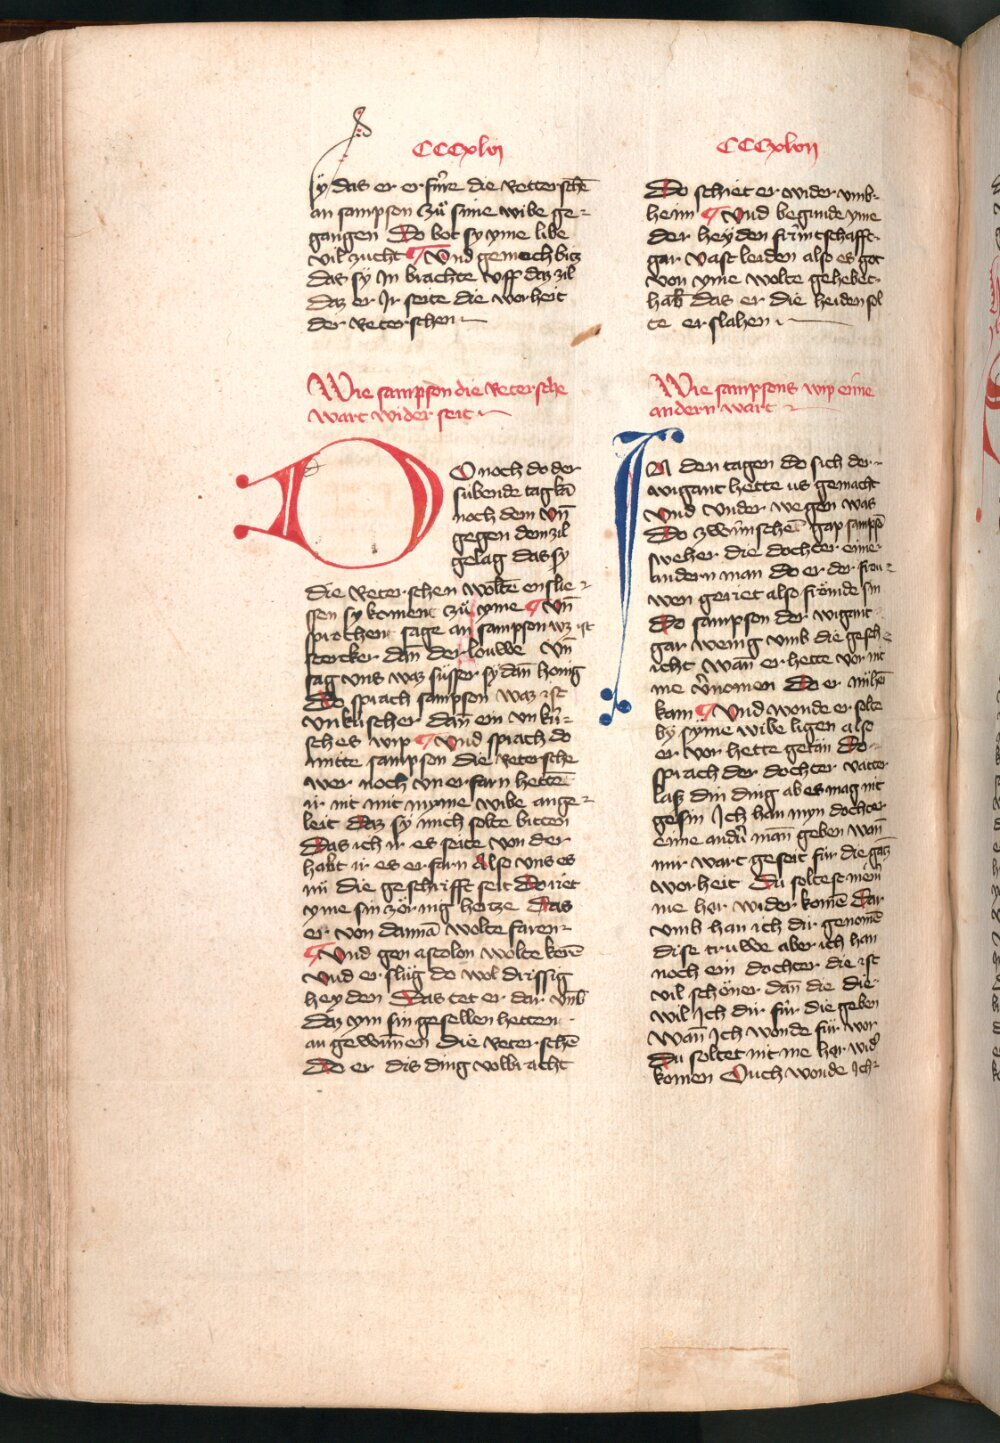 CCCxlvj
sy das er erfüre die Retterschē
an sampson Zů sime wibe ge⸗
gangen Do bot sy yme libe
vil zucht Vnd gemech bitz
das sÿ In brachte vff daz zil
daz er Ir seite die worheit
der Reterschen
Wie sampson die Retersche
wart wider seit
DO noch do der
sübende tag kā
noch dem vn̄
gegen dem zil
gelag das sy
die Reterschen woltē enslie⸗
ssen sy koment zů yme Vn̄
sprochent sage an sampson wz ist
stercker dan̄ der louwe Vn̄
sag vns waz süsser sy dan̄ honig
Do sprach sampson waz ist
vnküscher dan̄ ein vnkü⸗
sches wip Vnd sprach do
mitte sampson die Retersche
wer noch vnerfarn hettē
ir nit mit myme wibe ange⸗
leit Daz sy mich solte bitten
Das ich ir es seite von der
habt ir es erfarn Also vns es
nü die geschrifft seit Do riet
yme sin zörnig hertze Das
er von dannā wolte faren
Vnd gen ascolon wolte kerē
Vnd er slůg do wol drissig
heyden Das tet er dar vmb
Daz ym sin gesellen hetten
an gewūnen die Reterschē
Do er dis ding volbracht
CCCxlvij
Do schiet er wider vmb⸗
heim Vnd begunde yme
der heyden frūntschafft
gar vast leiden also es got
von yme wolte gehebet
hab̄ das er die heiden sol
te erslahen
Wie sampsons wip eime
andern wart
IN den tagen do sich der
wigant hette us gemacht
Vnd vnder wegen was
Do zwūnschē gap sampsō
sweher die dochter eime
andern man do er der frou⸗
wen geriet also frömde sin
Do sampson der wigant
gar wenig vmb die gesch
icht wan̄ er hette vor nit
me v̄nomen Do er mühē
kam Vnd wonde er solte
by syme wibe ligen also
er vor hette getān Do
sprach der dochter vatter
lasz din ding ab es mag nit
gesin Ich han myn dochter
eime andn̄ man̄ geben wan̄
mir wart geseit für die gātz
worheit Du soltest niem̄
me har wider komē Dar
vmb han ich dir genomē
dise truwe aber ich han
noch ein dochter die ist
vil schöner dan̄ die die
wil Ich dir für die geben
Wan̄ Ich wonde für wor
du soltet nit me har wid̄
komen Ouch wonde Ich